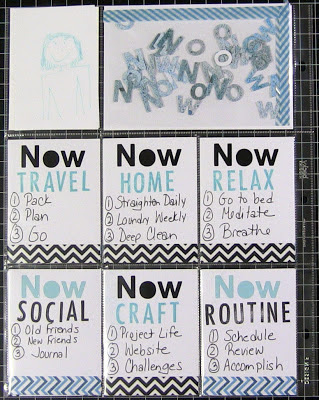 NOW
TRAVEL
① Pack
② Plan
③ Go
NOW
HOME
① Straighten Daily
② Laundry Weekly
③ Deep Clean
NOW
RELAX
① Go to bed
② Meditate
③ Breathe
Now
SOCIAL
① Old friends
② New friends
③ Journal
NOW
CRAFT
① Project Life
② Website
③ Challenges
Now
ROUTINE
① Schedule
② Review
③ Accomplish